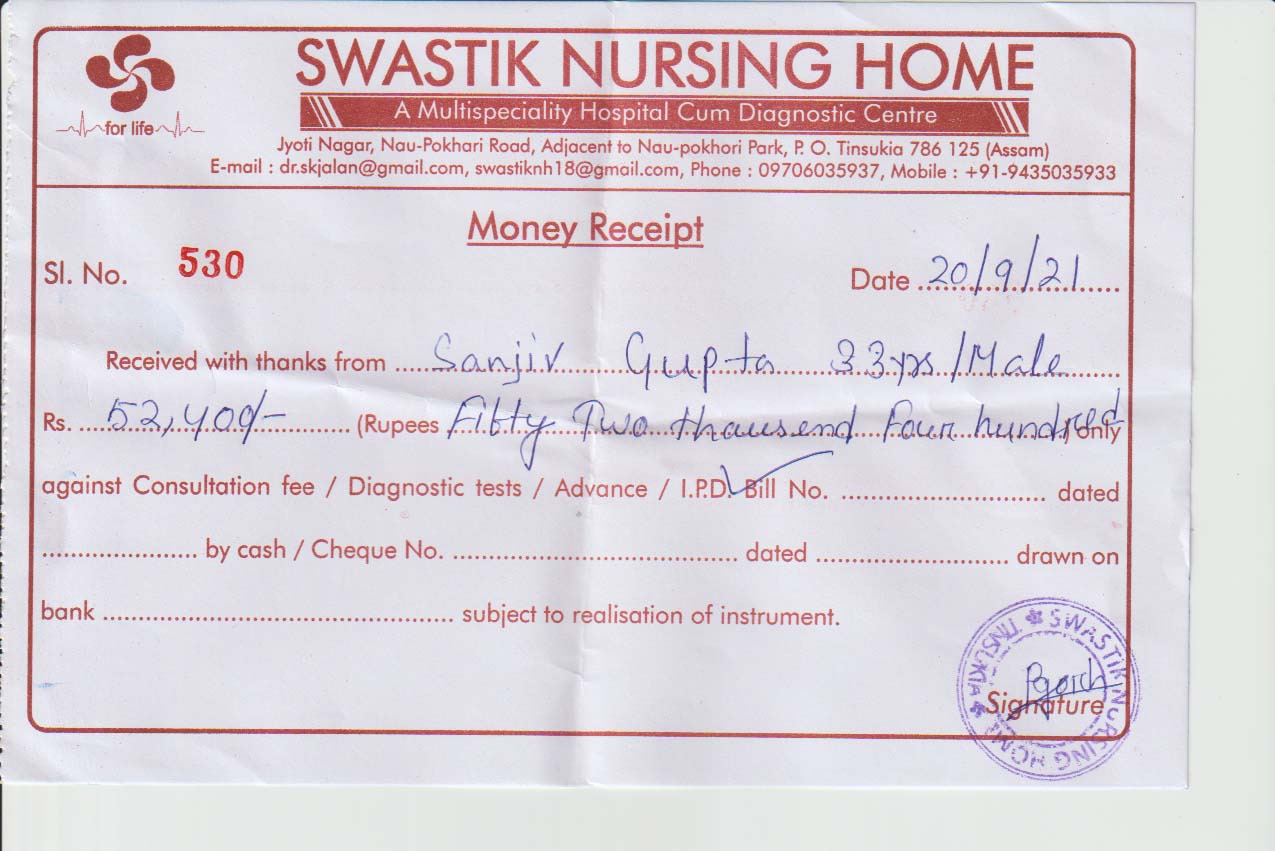 SWASTIK NURSING HOME
A Multispeciality Hospital Cum Diagnostic Centre
for life
Jyoti Nagar, Nau-Pokhari Road, Adjacent to Nau-pokhori Park, P. O. Tinsukia 786 125 (Assam)
E-mail : dr.skjalan@gmail.com, swastiknh18@gmail.com, Phone : 09706035937, Mobile : +91-9435035933
Money Receipt
Sl. No. 530 Date 20/9/21
Received with thanks from Sanjiv Gupta 33yrs/Male
Rs. 52,400/- (Rupees Fifty Two thausend Four hundred) only
against Consultation fee / Diagnostic tests / Advance / I.P.D. Bill No. .......................... dated
.................... by cash / Cheque No. ..................................... dated ......................... drawn on
bank .............................................. subject to realisation of instrument.
Signature
SWASTIK NURSING HOME TINSUKIA